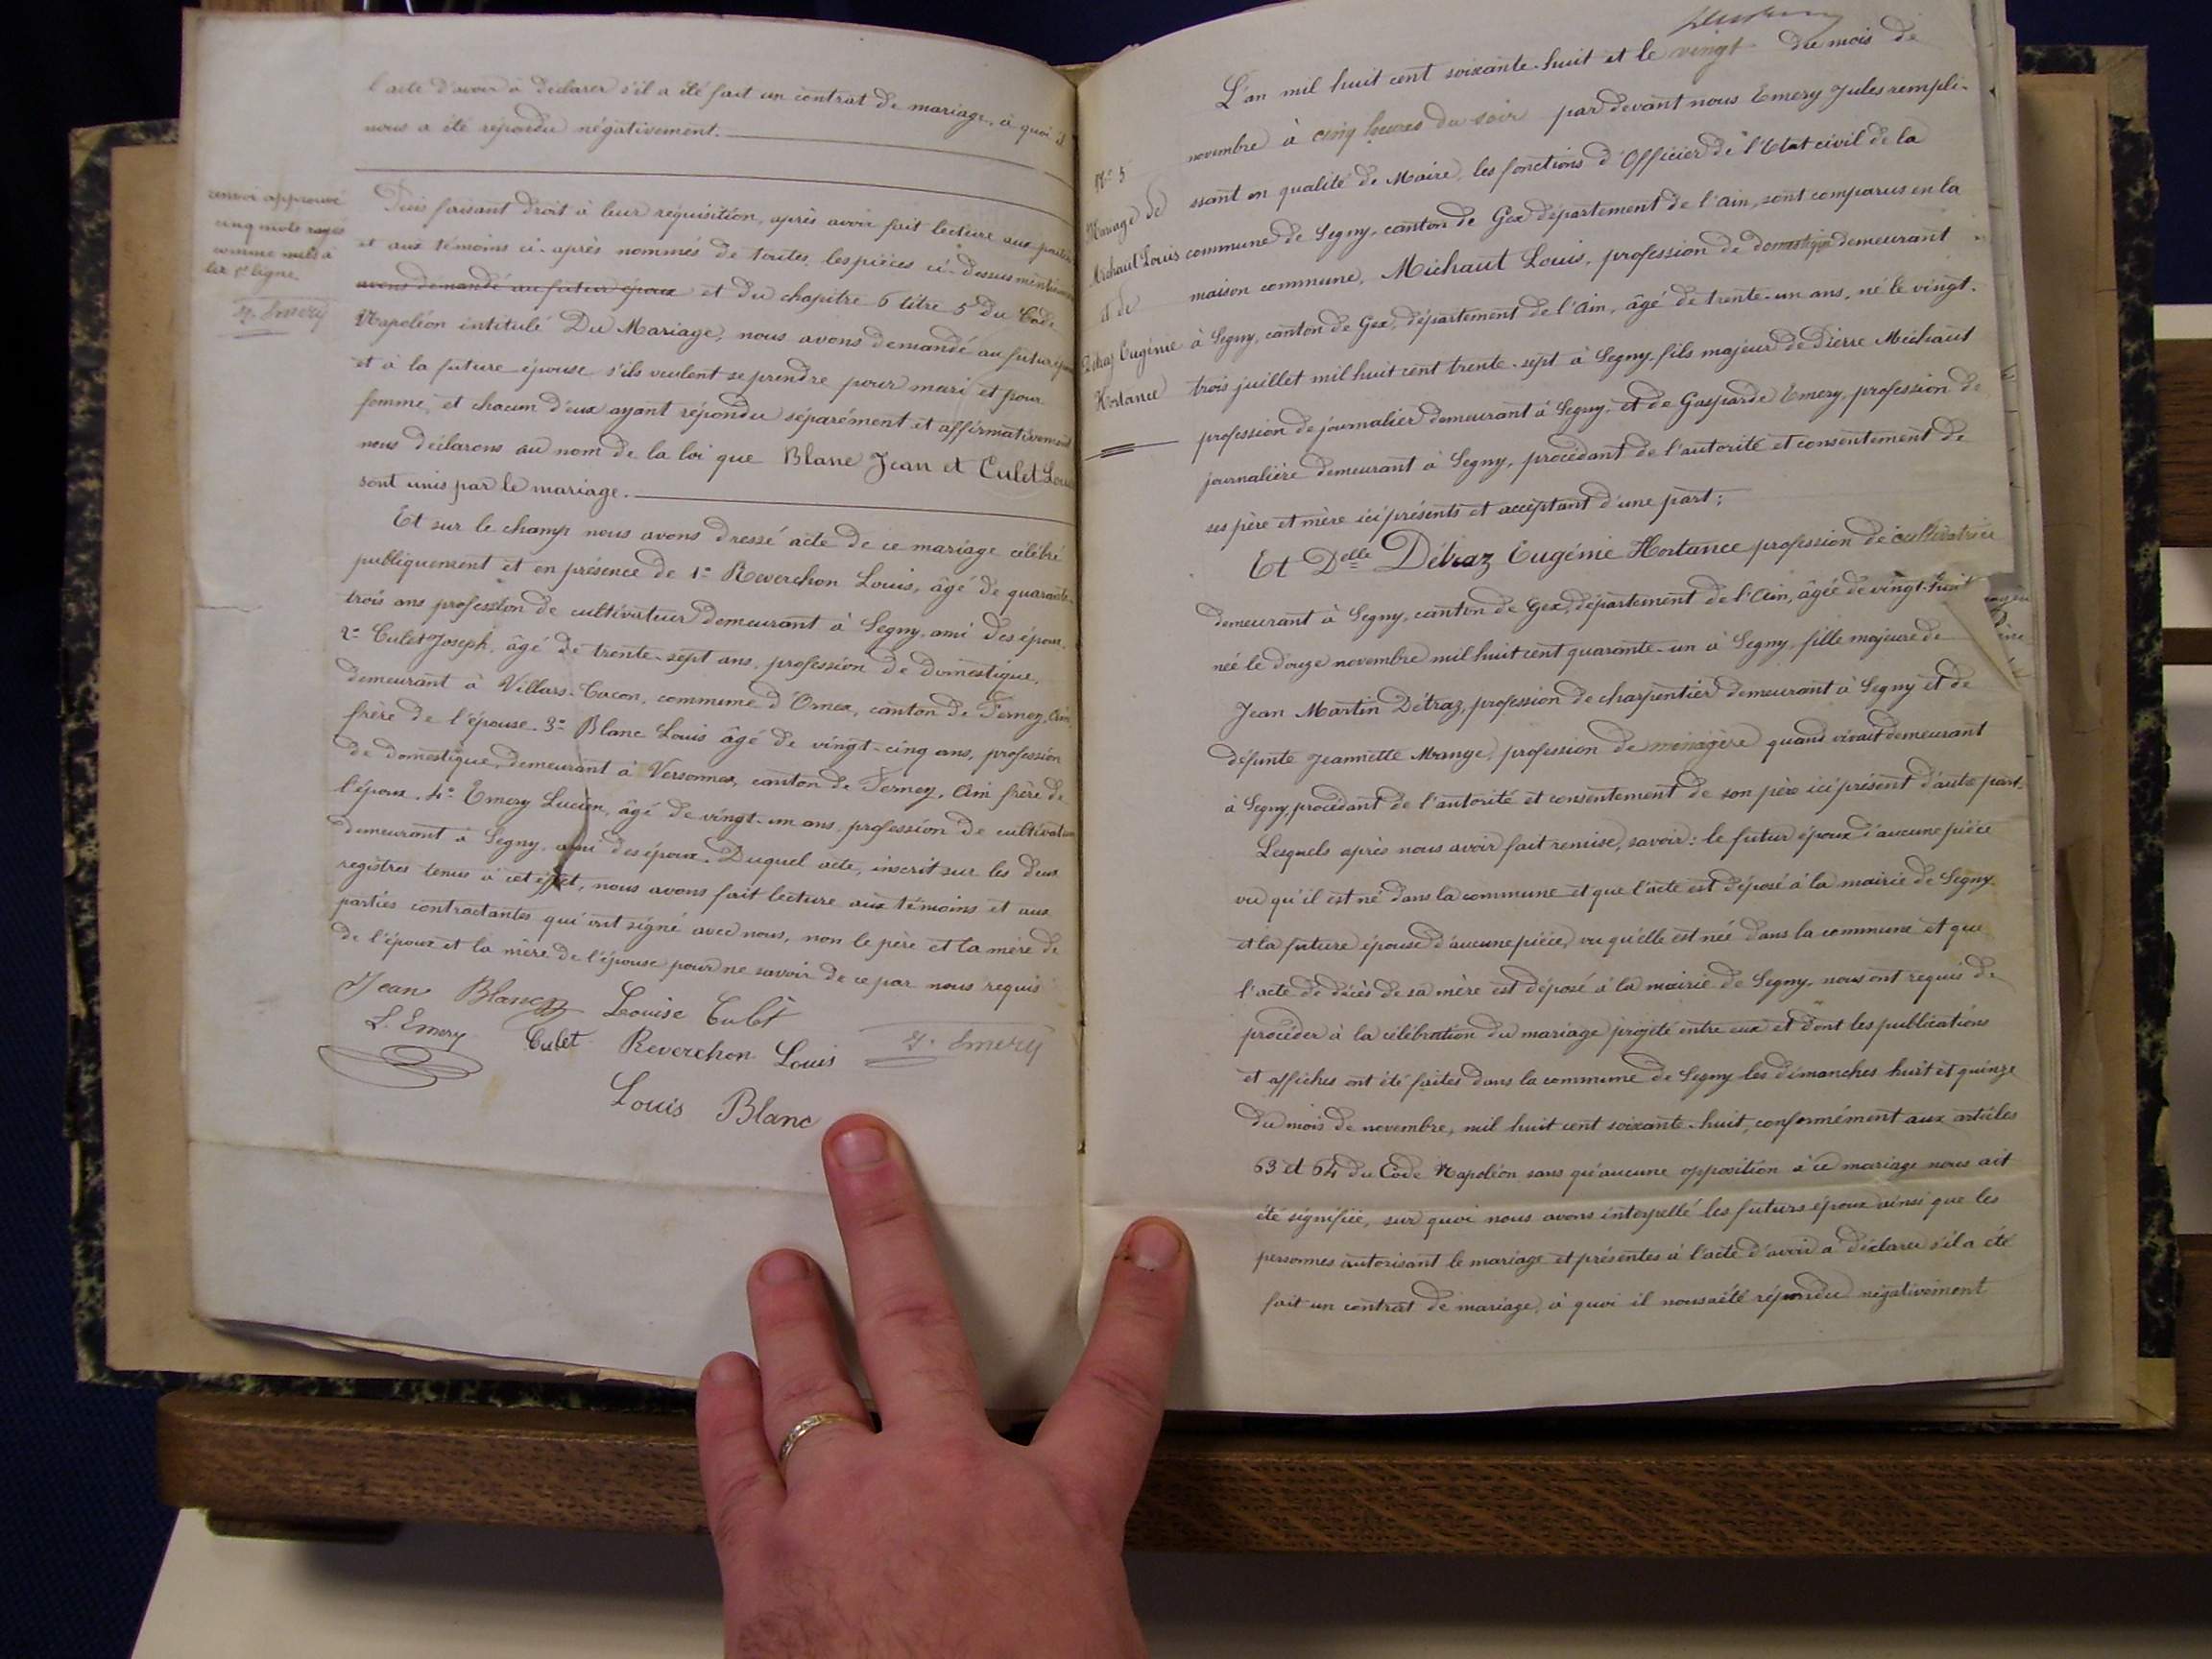 l'acte d'avoir à déclarer s'il a été fait un contrat de mariage, à quoi il
nous a été répondu négativement.
renvoi approuvé
cinq mots rayés
comme nuls à
la 5e ligne
J. Emery
Puis faisant droit à leur réquisition, après avoir fait lecture aux parties
et aux témoins ci-après nommés de toutes les pièces ci-dessus mentionnées
avons demandé au futur époux et du chapitre 6 titre 5 du Code
Napoléon intitulé Du Mariage, nous avons demandé au futur époux
et à la future épouse s'ils veulent se prendre pour mari et pour
femme, et chacun d'eux ayant répondu séparément et affirmativement
nous déclarons au nom de la loi que Blanc Jean et Culet Louise
sont unis par le mariage.
Et sur le champ nous avons dressé acte de ce mariage célébré
publiquement et en présence de 1° Reverchon Louis, âgé de quarante-
trois ans profession de cultivateur demeurant à Segny, ami des époux.
2° Culet Joseph, âgé de trente-sept ans, profession de domestique,
demeurant à Villars-Tacon, commune d'Ornex, canton de Ferney, Ain,
frère de l'épouse. 3° Blanc Louis âgé de vingt-cinq ans, profession
de domestique, demeurant à Versonnex, canton de Ferney, Ain frère de
l'époux. 4° Emery Lucien, âgé de vingt-un ans, profession de cultivateur
demeurant à Segny, ami des époux. Duquel acte, inscrit sur les deux
registres tenus à cet effet, nous avons fait lecture aux témoins et aux
parties contractantes qui ont signé avec nous, non le père et la mère de
de l'époux et la mère de l'épouse pour ne savoir de ce par nous requis
Jean Blanc Louise Culet
L. Emery Culet Reverchon Louis J. Emery
Louis Blanc
N° 5
Mariage de
Michaut Louis
et de
Détraz Eugénie
Hortance
L'an mil huit cent soixante-huit et le vingt du mois de
novembre à cinq heures du soir par devant nous Emery Jules rempli-
ssant en qualité de Maire, les fonctions d'Officier de l'Etat civil de la
commune de Segny, canton de Gex département de l'Ain, sont comparus en la
maison commune, Michaut Louis, profession de domestique demeurant
à Segny, canton de Gex, département de l'Ain, âgé de trente-un ans, né le vingt-
trois juillet mil huit cent trente-sept à Segny, fils majeur de Pierre Michaut
profession de journalier demeurant à Segny, et de Gasparde Emery, profession de
journalière demeurant à Segny, procédant de l'autorité et consentement de
ses père et mère ici présents et acceptant d'une part;
Et Delle Détraz Eugénie Hortance profession de cultivatrice
demeurant à Segny, canton de Gex, département de l'Ain, âgée de vingt-huit
née le douze novembre mil huit cent quarante-un à Segny, fille majeure de
Jean Martin Détraz, profession de charpentier demeurant à Segny et de
défunte Jeannette Mange, profession de ménagère quand vivait demeurant
à Segny, procédant de l'autorité et consentement de son père ici présent d'autre part.
Lesquels après nous avoir fait remise, savoir: le futur époux d'aucune pièce
vu qu'il est né dans la commune et que l'acte est déposé à la mairie de Segny
et la future épouse d'aucune pièce, vu qu'elle est née dans la commune et que
l'acte de décès de sa mère est déposé à la mairie de Segny, nous ont requis de
procéder à la célébration du mariage projeté entre eux et dont les publications
et affiches ont été faites dans la commune de Segny les dimanches huit et quinze
du mois de novembre, mil huit cent soixante-huit, conformément aux articles
63 et 64 du Code Napoléon sans qu'aucune opposition à ce mariage nous ait
été signifiée, sur quoi nous avons interpellé les futurs époux ainsi que les
personnes autorisant le mariage et présentes à l'acte d'avoir à déclarer s'il a été
fait un contrat de mariage, à quoi il nous a été répondu négativement